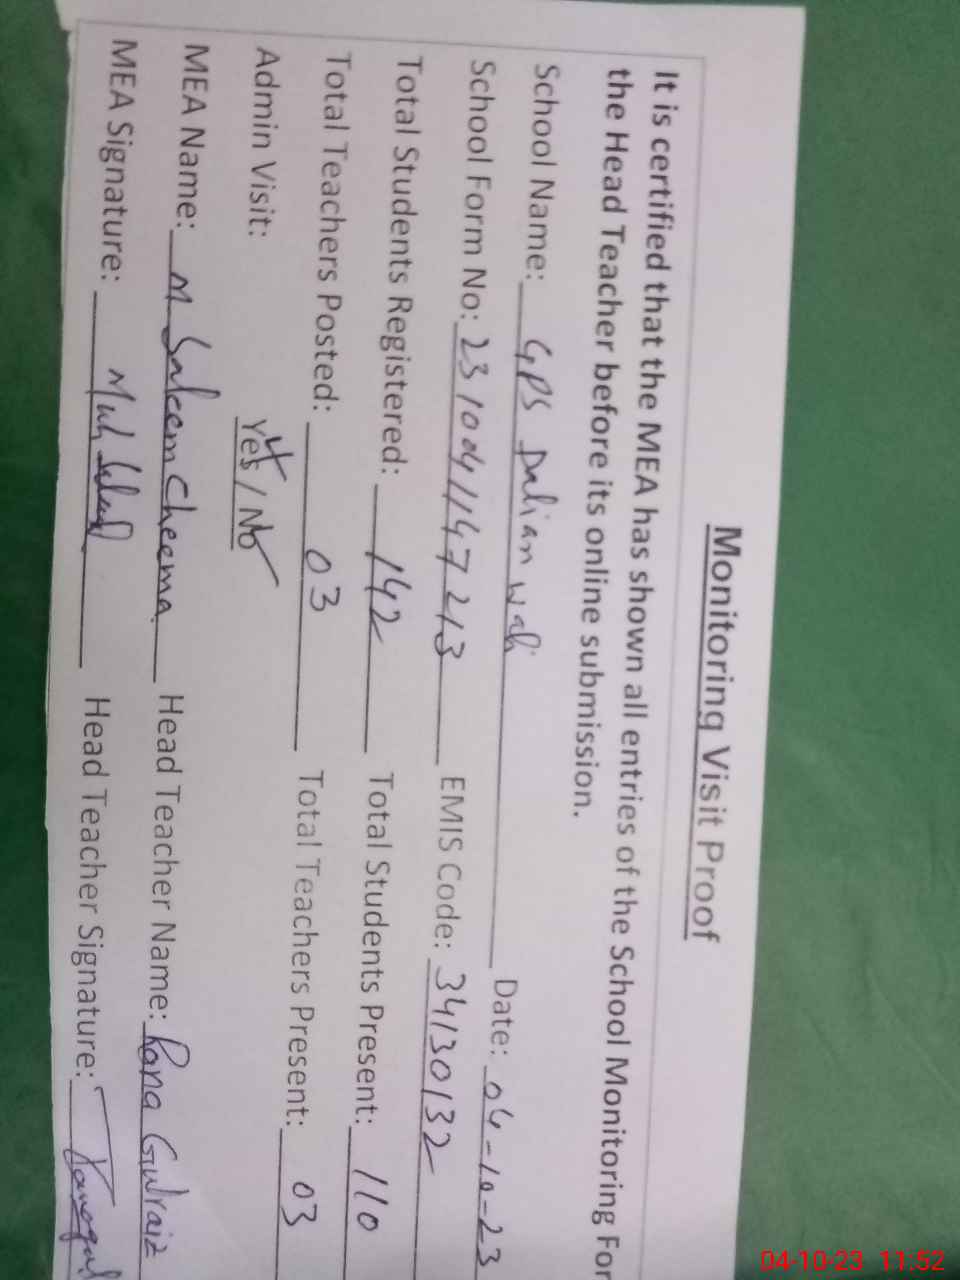 Monitoring Visit Proof
It is certified that the MEA has shown all entries of the School Monitoring For
the Head Teacher before its online submission.
School Name: GPS Dalian wali Date: 04-10-23
School Form No: 2310041147213 EMIS Code: 34130132
Total Students Registered: 142 Total Students Present: 110
Total Teachers Posted: 03 Total Teachers Present: 03
Admin Visit: Yes / No
MEA Name: M Saleem Cheema Head Teacher Name: Rana Gulraiz
MEA Signature: Head Teacher Signature:
04-10-23 11:52